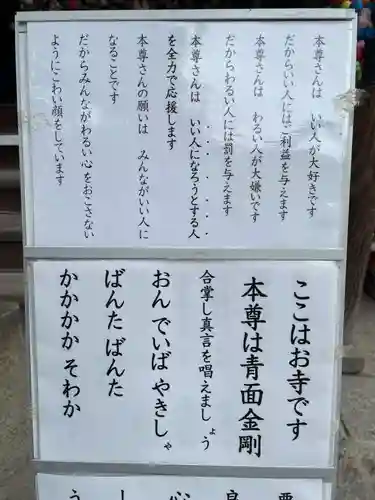 本尊さんは　いい人が大好きです
だからいい人にはご利益を与えます
本尊さんは　わるい人が大嫌いです
だからわるい人には罰を与えます
本尊さんは　いい人になろうとする人
を全力で応援します
本尊さんの願いは　みんながいい人に
なることです
だからみんながわるい心をおこさない
ようにこわい顔をしています
ここはお寺です
本尊は青面金剛
合掌し真言を唱えましょう
おん でいば やきしゃ
ばんた ばんた
かかかか そわか